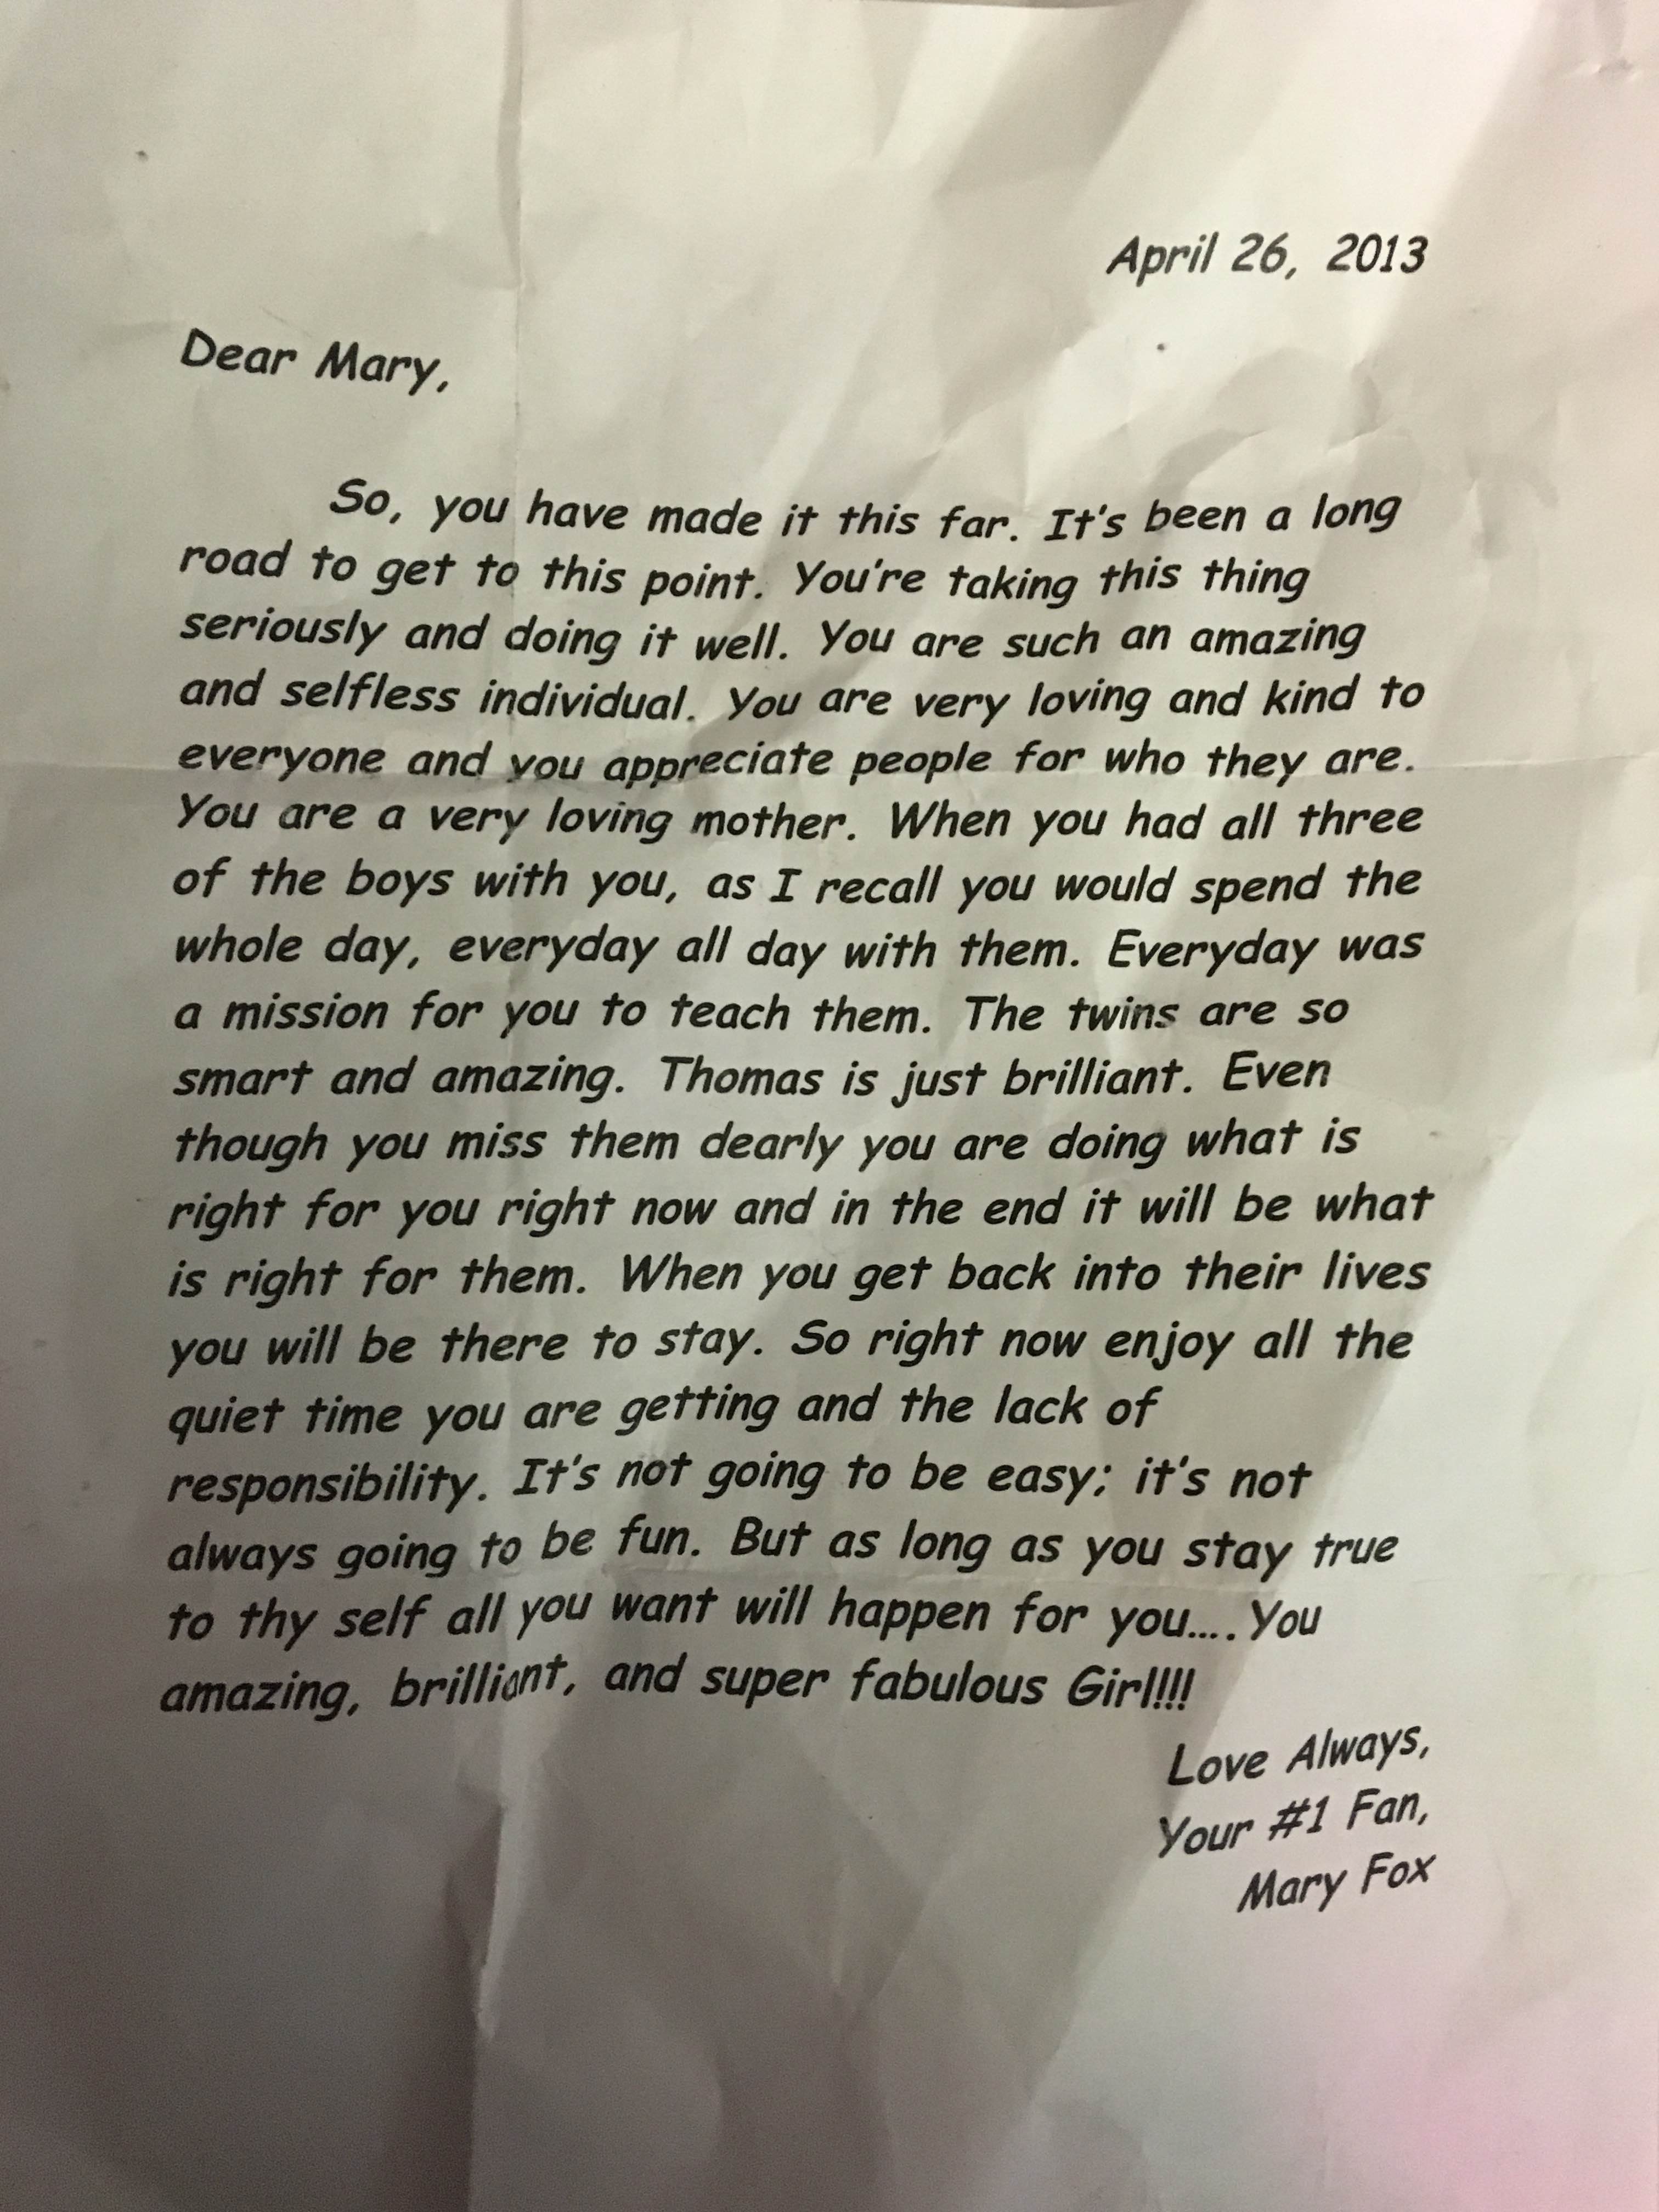 April 26, 2013
Dear Mary,
So, you have made it this far. It's been a long
road to get to this point. You're taking this thing
seriously and doing it well. You are such an amazing
and selfless individual. You are very loving and kind to
everyone and you appreciate people for who they are.
You are a very loving mother. When you had all three
of the boys with you, as I recall you would spend the
whole day, everyday all day with them. Everyday was
a mission for you to teach them. The twins are so
smart and amazing. Thomas is just brilliant. Even
though you miss them dearly you are doing what is
right for you right now and in the end it will be what
is right for them. When you get back into their lives
you will be there to stay. So right now enjoy all the
quiet time you are getting and the lack of
responsibility. It's not going to be easy; it's not
always going to be fun. But as long as you stay true
to thy self all you want will happen for you.... You
amazing, brilliant, and super fabulous Girl!!!!
Love Always,
Your #1 Fan,
Mary Fox